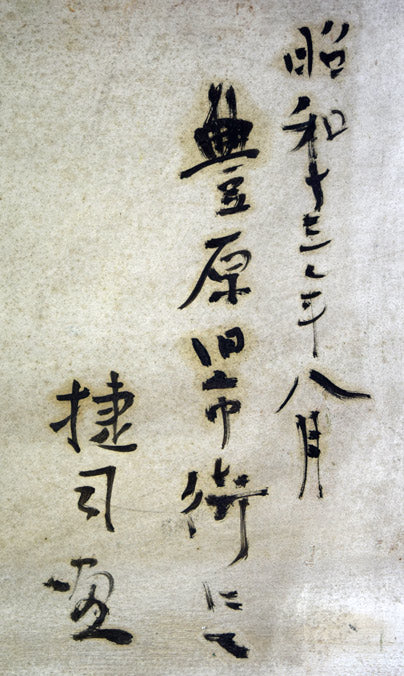 昭和十三年八月
豊原旧市街にて
捷司画